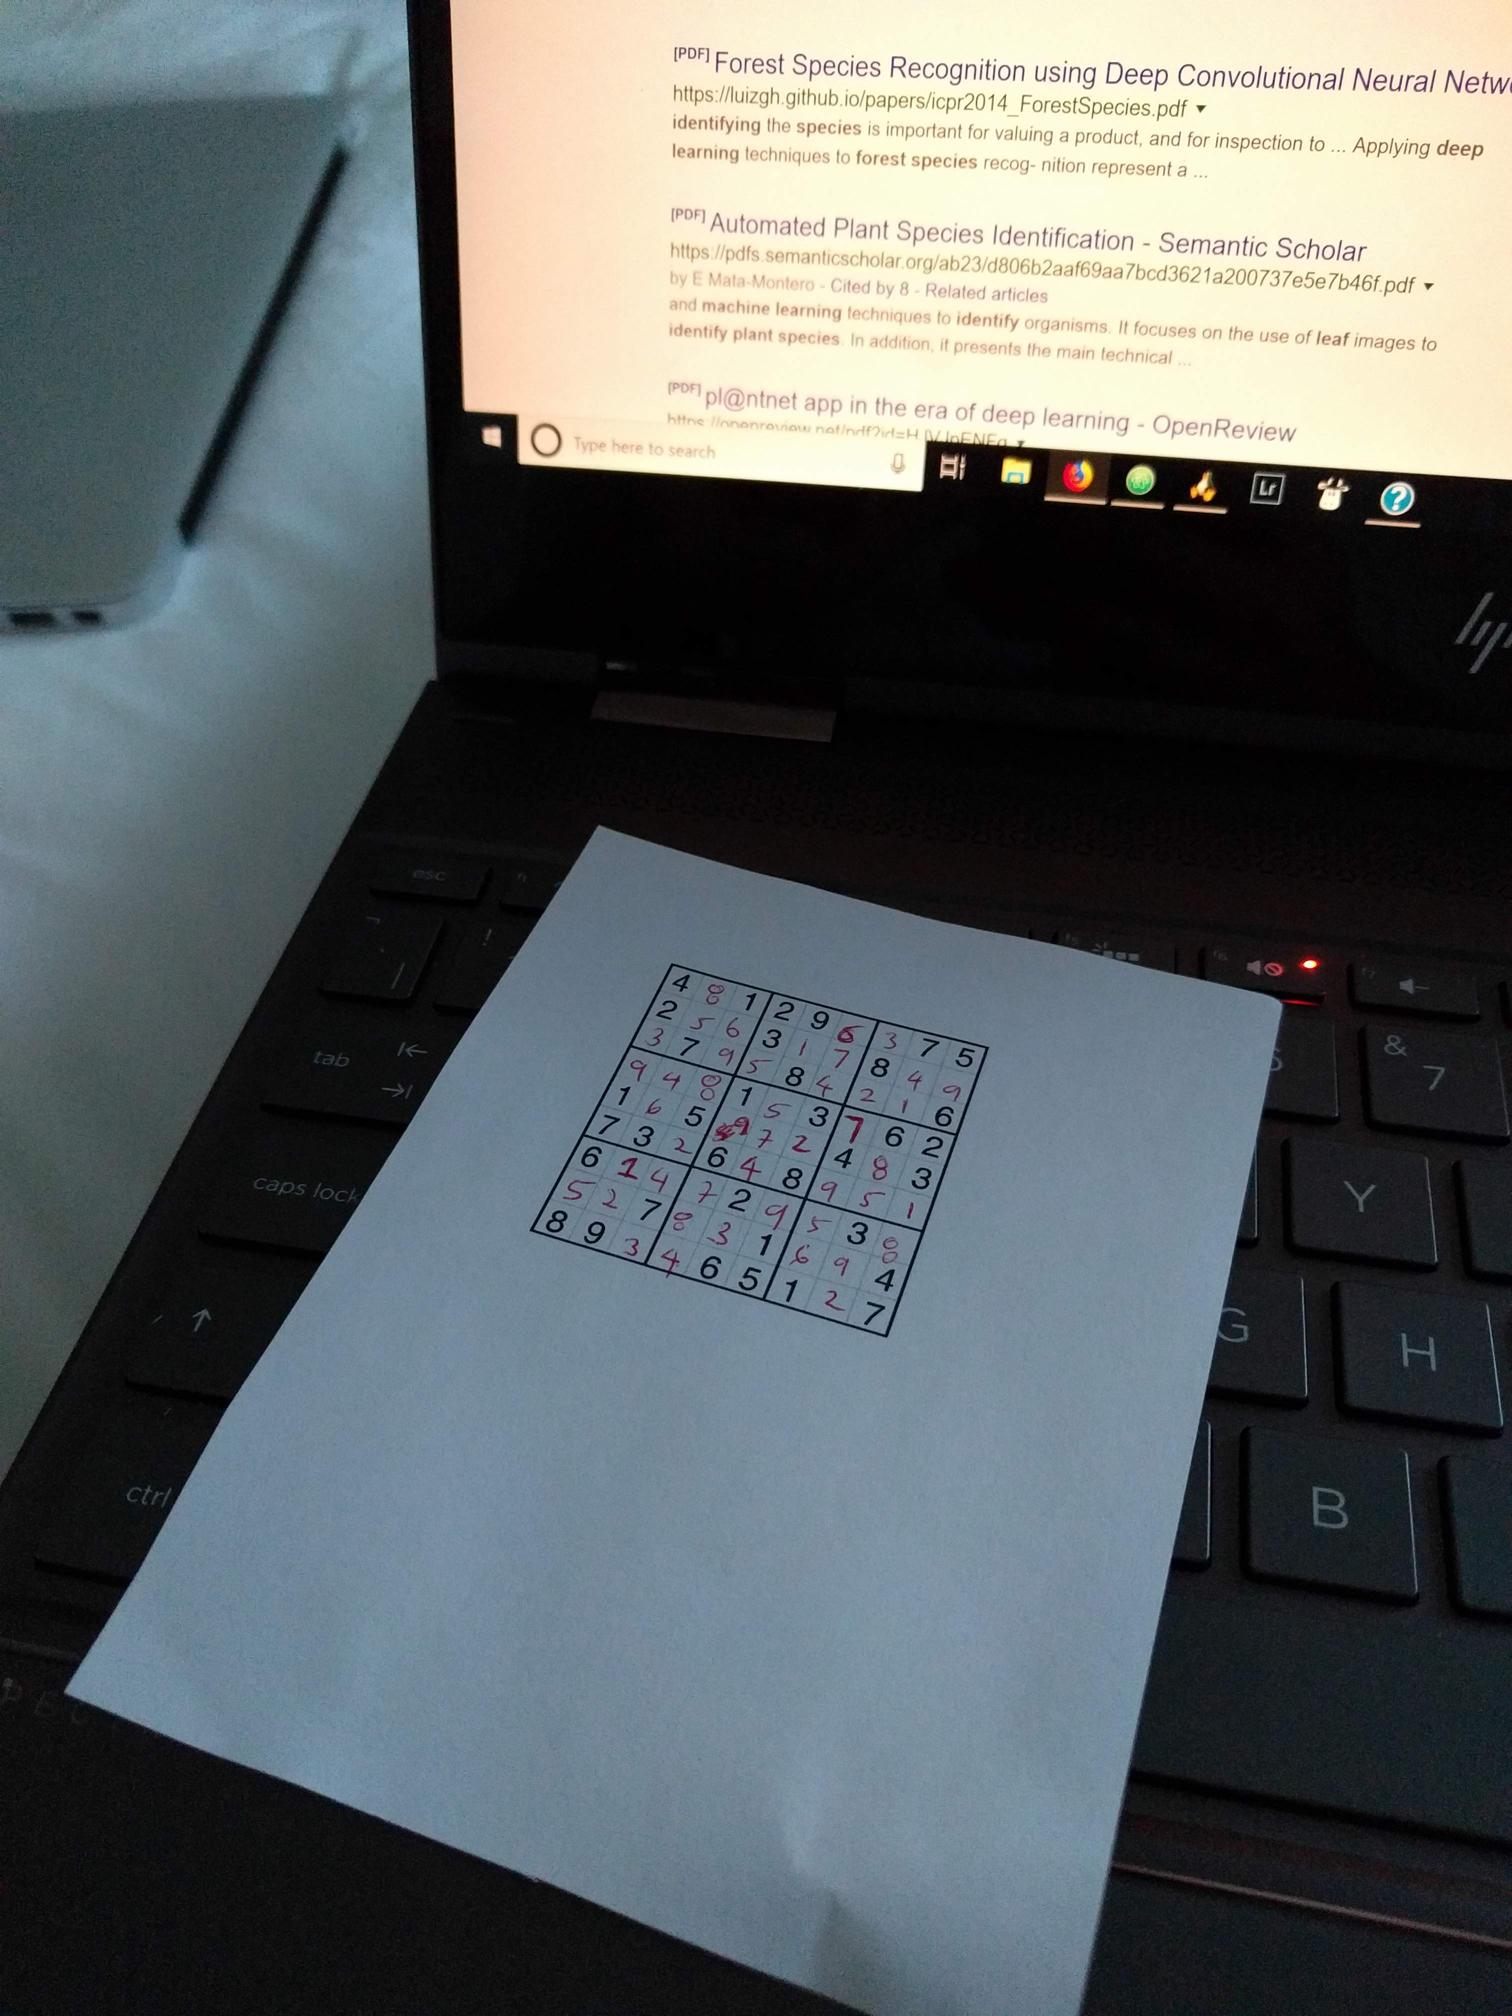 [PDF] Forest Species Recognition using Deep Convolutional Neural Netw
https://luizgh.github.io/papers/icpr2014_ForestSpecies.pdf ▾
identifying the species is important for valuing a product, and for inspection to ... Applying deep
learning techniques to forest species recog- nition represent a ...
[PDF] Automated Plant Species Identification - Semantic Scholar
https://pdfs.semanticscholar.org/ab23/d806b2aaf69aa7bcd3621a200737e5e7b46f.pdf ▾
by E Mata-Montero - Cited by 8 - Related articles
and machine learning techniques to identify organisms. It focuses on the use of leaf images to
identify plant species. In addition, it presents the main technical ...
[PDF] pl@ntnet app in the era of deep learning - OpenReview
Type here to search
Lr
?
hp
esc
!
tab
caps lock
ctrl
& 7
Y
G H
B
4 8 1 2 9 6 3 7 5
2 5 6 3 1 7 8 4 9
3 7 9 5 8 4 2 1 6
9 4 8 1 5 3 7 6 2
1 6 5 9 7 2 4 8 3
7 3 2 6 4 8 9 5 1
6 1 4 7 2 9 5 3 8
5 2 7 8 3 1 6 9 4
8 9 3 4 6 5 1 2 7